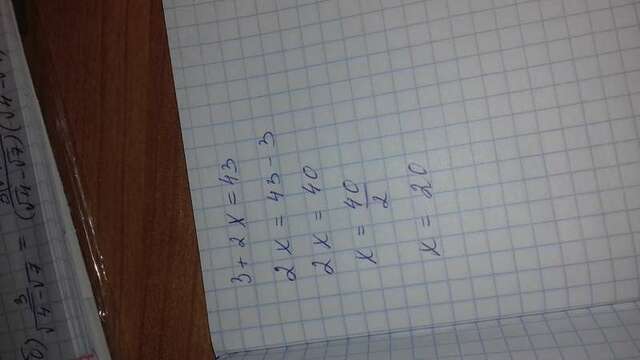 б) 3/√4-√7 = (√4-√7)(√4-
3 + 2x = 43
2x = 43 - 3
2x = 40
x = 40/2
x = 20